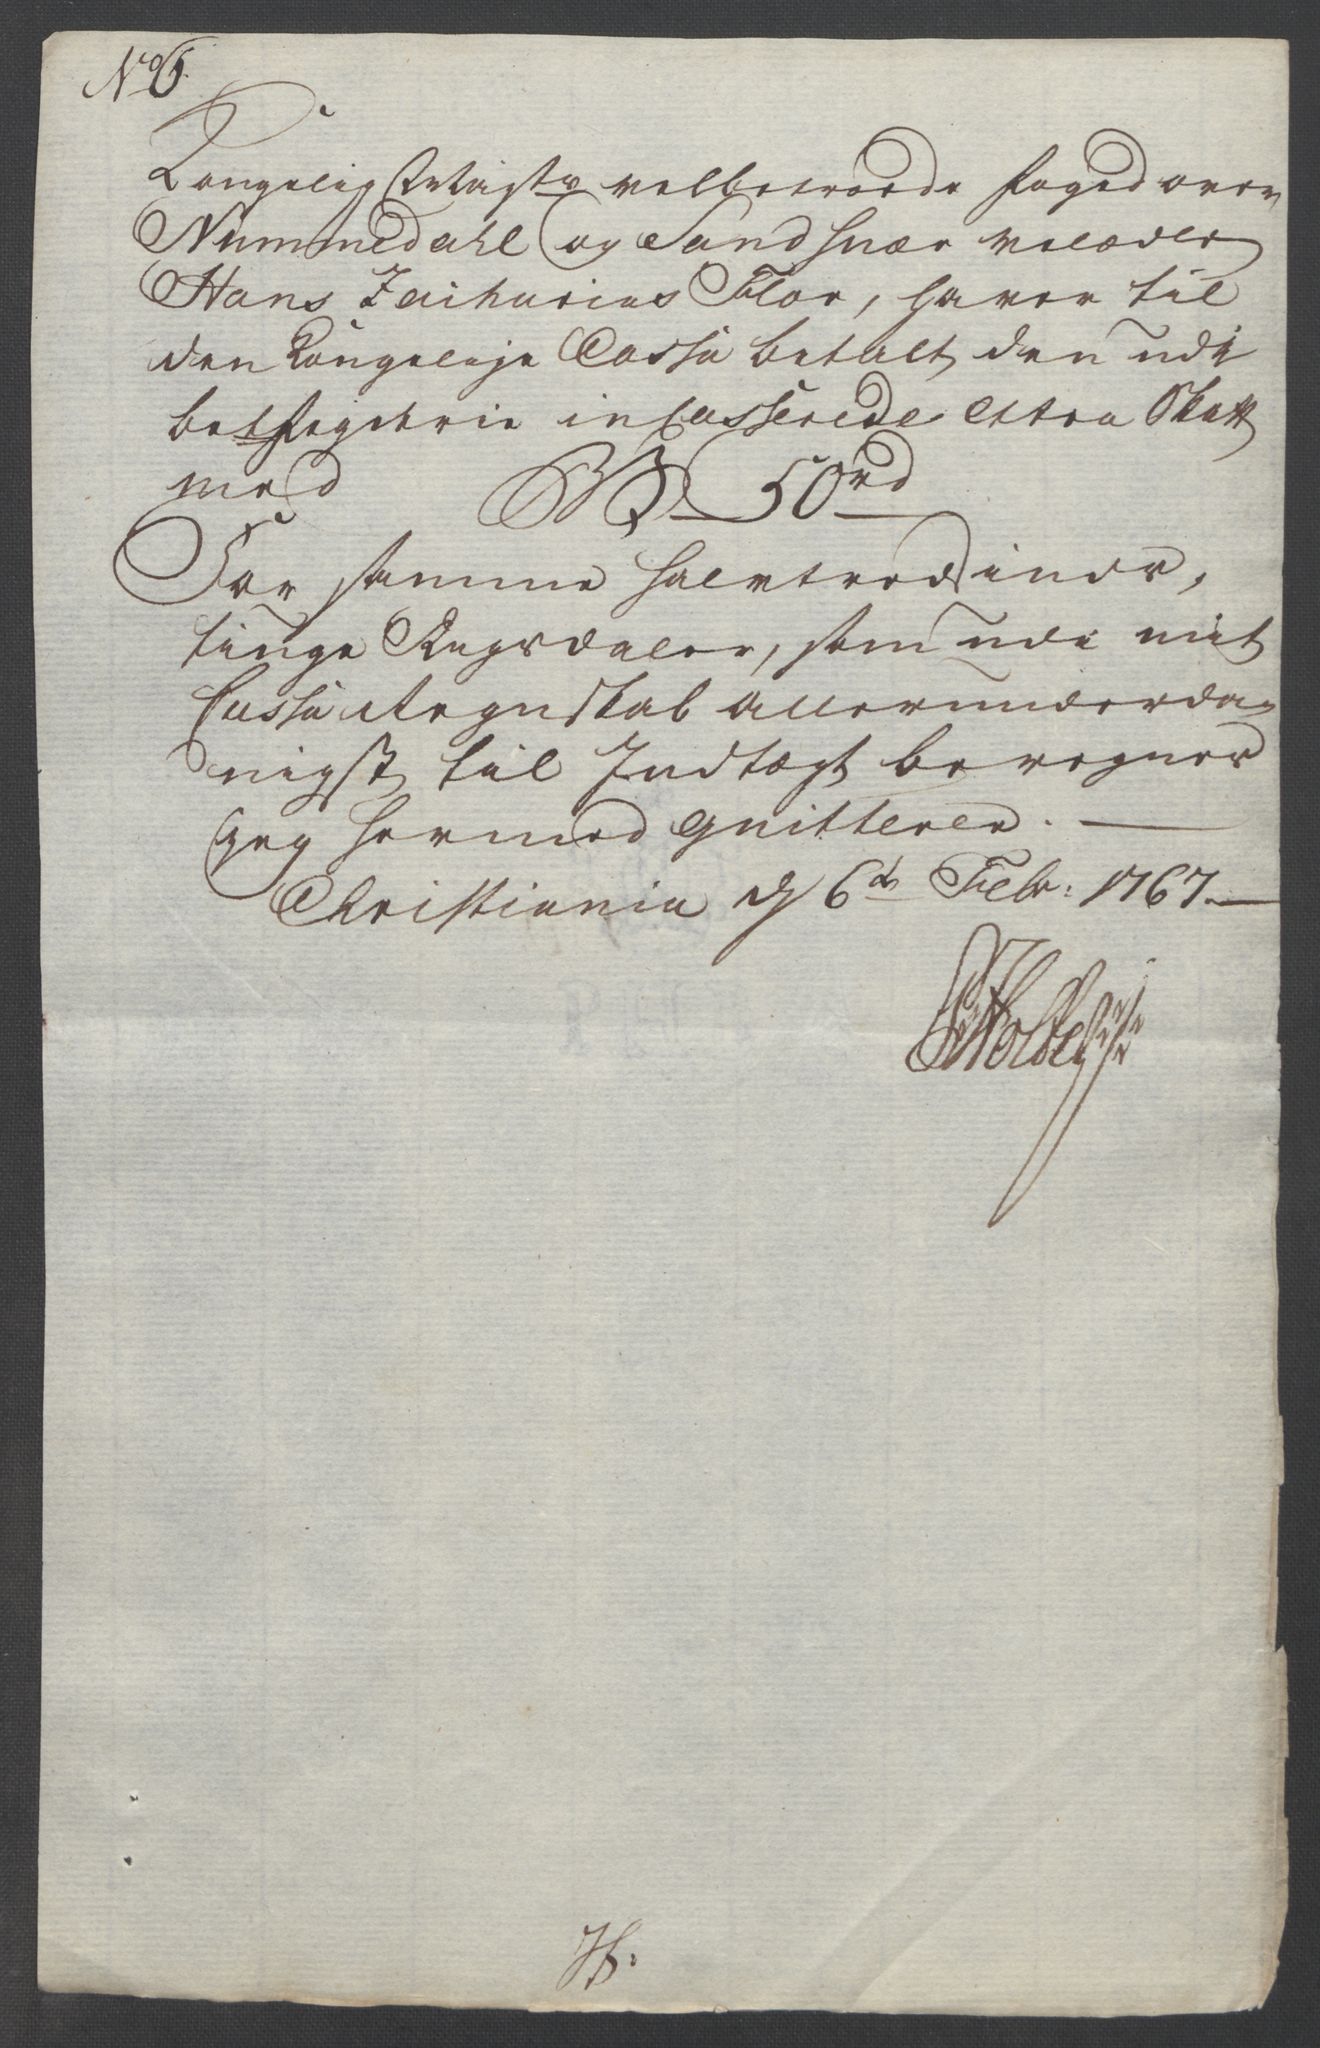 No 6.
Kongelig Mayts velbetroede Foged over
Nummedahl og Sandsvær velædle
Hans Zacharias Flor, haver til
den Kongelige Cassa betalt den udi
bem. Fogderie incasserede Extra Skatt
med 50 rd
For samme halvtredsinds,
tiuge Rigsdaler, som udi mit
Cassa Regnskab allerunderda,
nigst til Indtægt beregnes
jeg hermed qvitterer.
Christiania d 6te Febr: 1767.